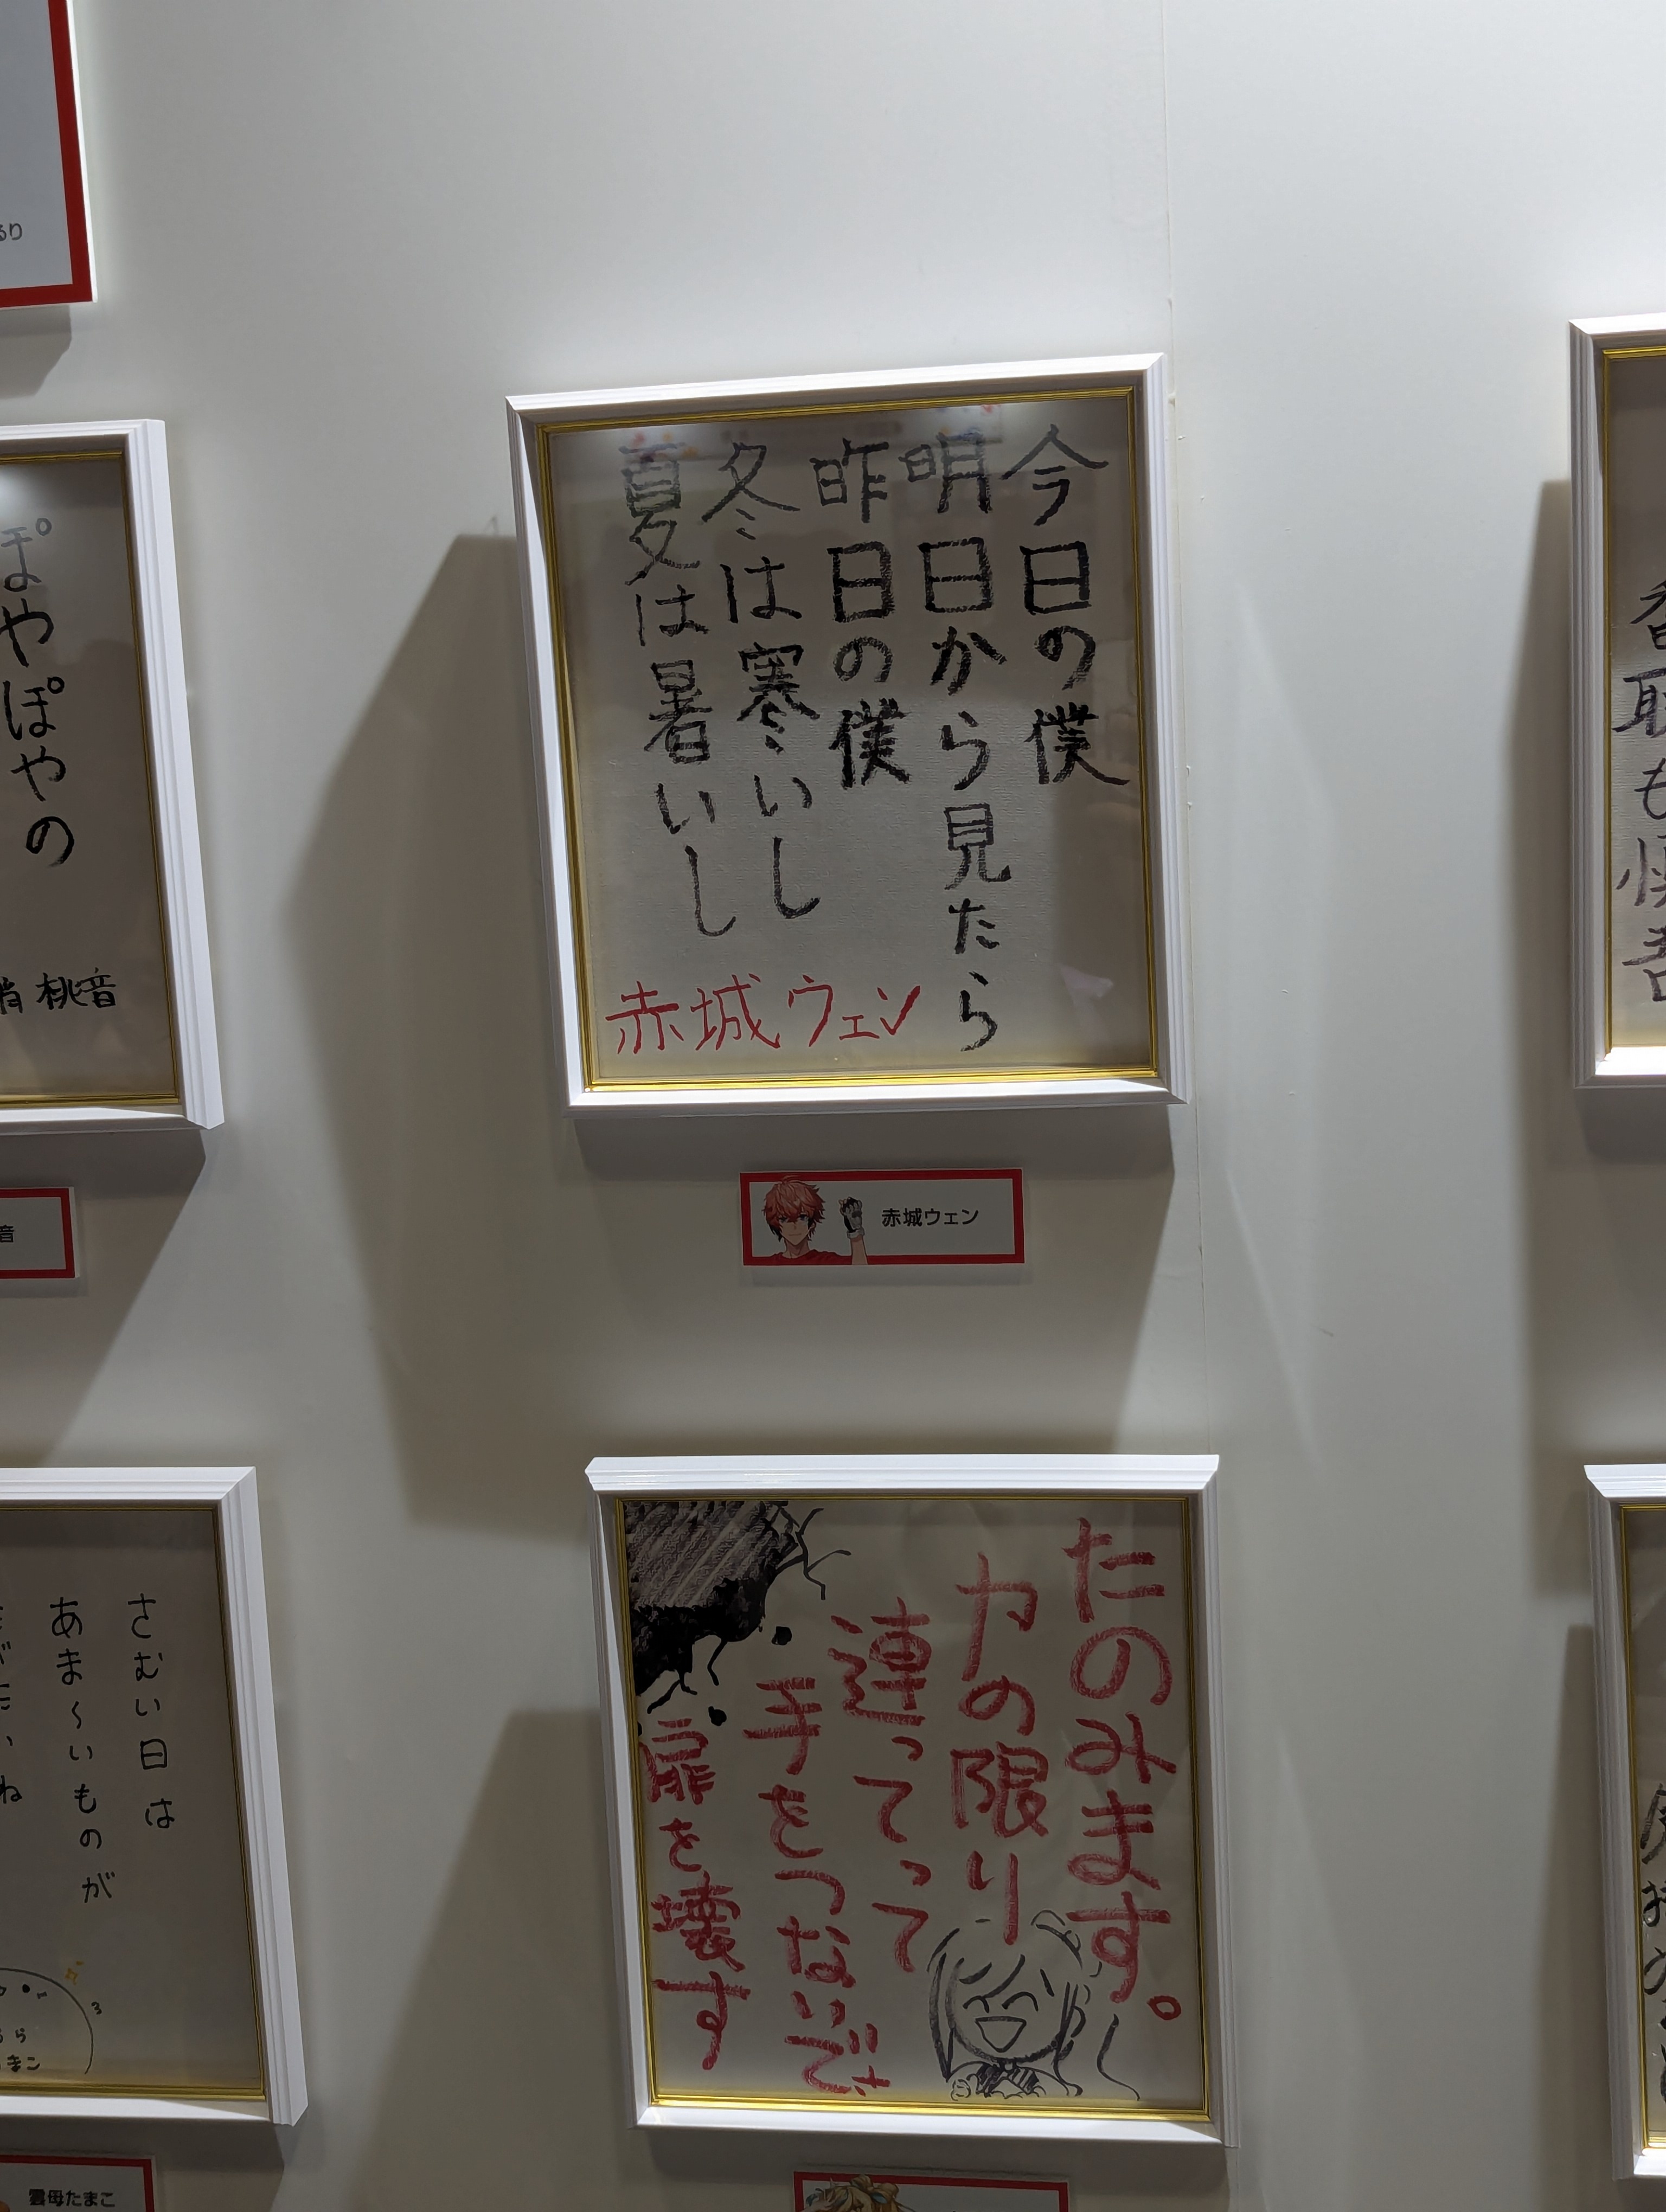 今日の僕
明日から見たら
昨日の僕
冬は寒いし
夏は暑いし
赤城ウェン
赤城ウェン
たのみます。
力の限り
連ってって
手をつないで
扉を壊す
ぽやぽやの
桃音
音
さむい日は
あま〜いものが
雲母たまこ